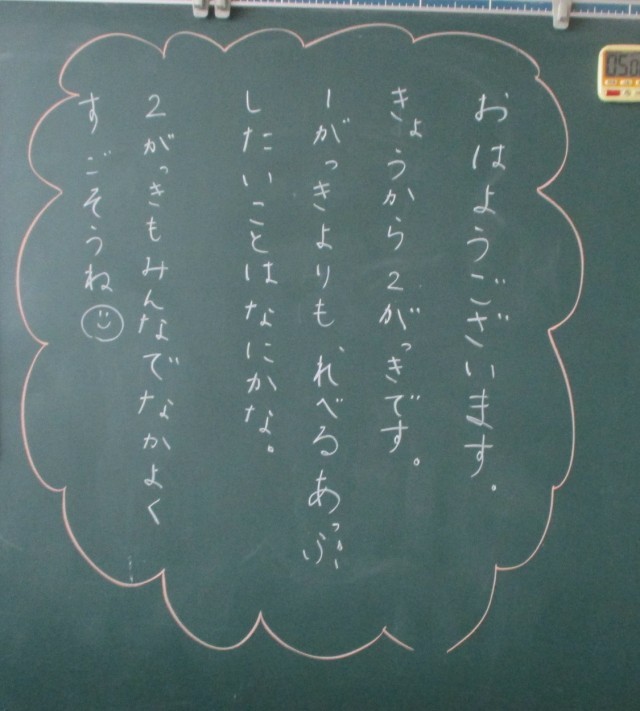 おはようございます。
きょうから2がっきです。
1がっきよりも、れべるあっぷ
したいことはなにかな。
2がっきもみんなでなかよく
すごそうね